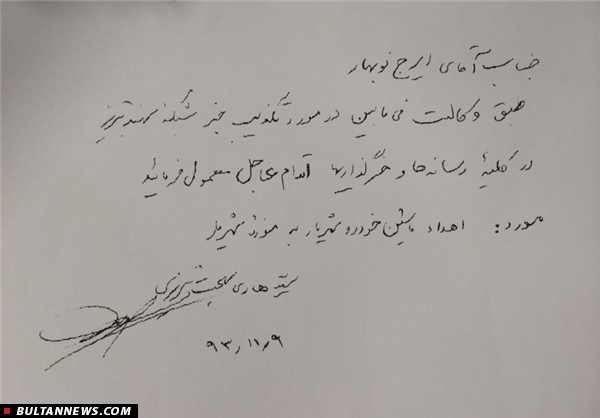 جناب آقای ایرج نوبهار
طبق وکالت فی مابین در مورد تکذیب خبر شبکه سهند تبریز
در کلیهٔ رسانه ها و خبرگذاریها اقدام عاجل معمول فرمائید
مورد: اهداء ماشین خودرو شهریار به موزهٔ شهریار
سید هادی بهجت تبریزی
۹۳/۱۱/۹
BULTANNEWS.COM